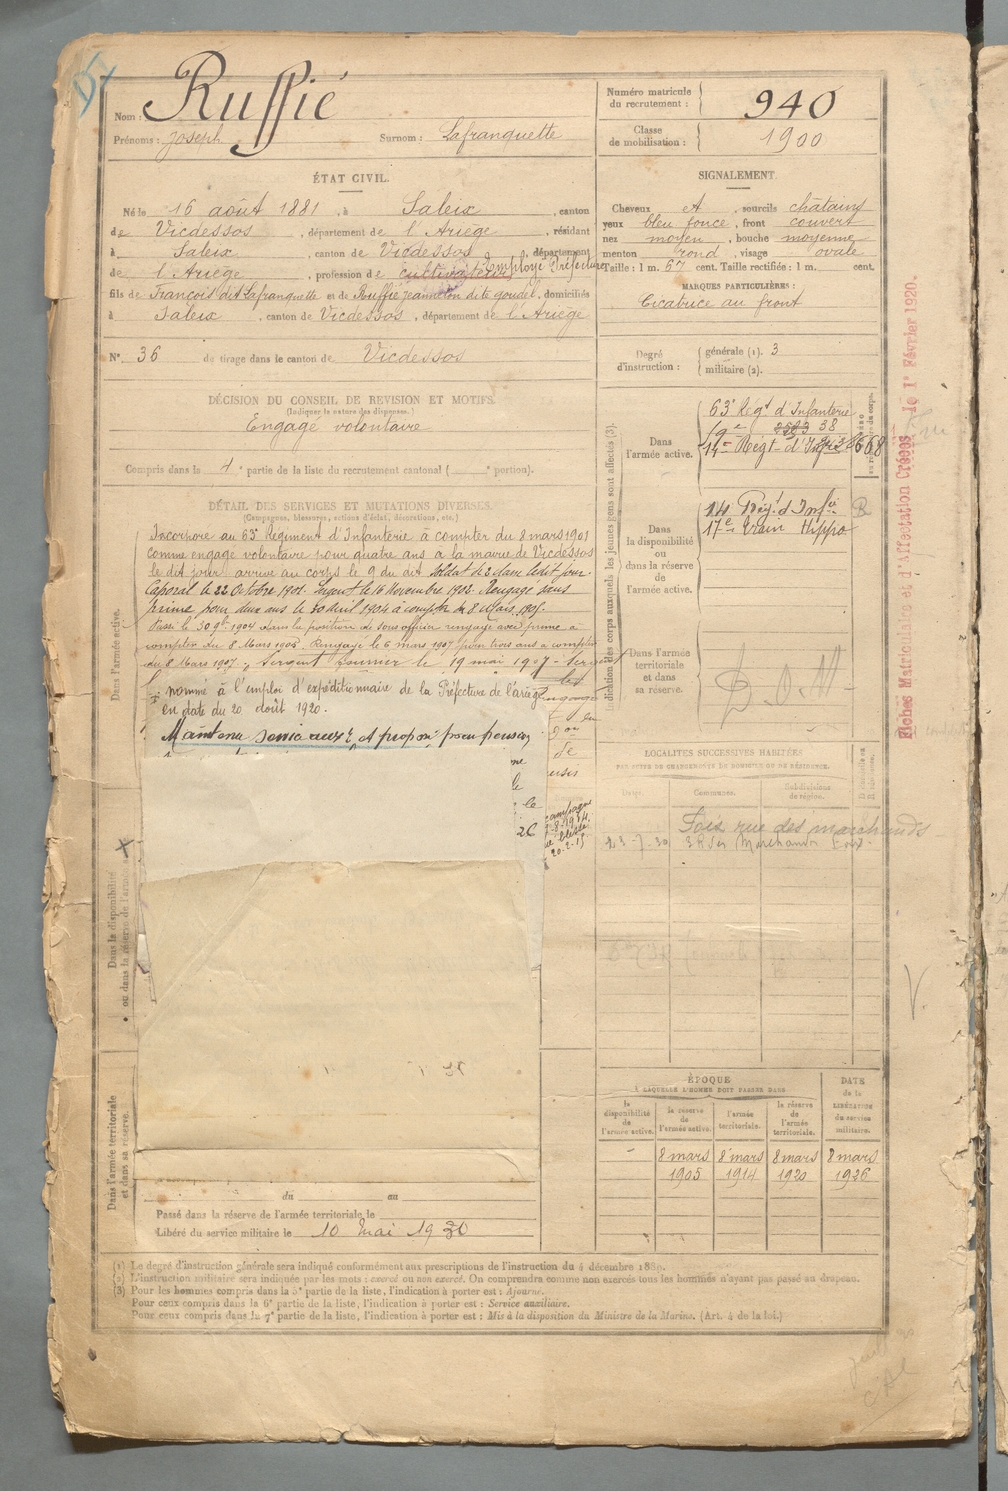 Nom : Ruffié
Prénoms : Joseph Surnom : Lafranquette
Numéro matricule du recrutement : 940
Classe de mobilisation : 1900
ÉTAT CIVIL.
Né le 16 août 1881, à Saleix, canton
de Vicdessos, département de l'Ariège, résidant
à Saleix, canton de Vicdessos, département
de l'Ariège, profession de cultivateur Employé Préfecture
fils de François dit Lafranquette et de Ruffié Jeanneton dite goudel, domiciliés
à Saleix, canton de Vicdessos, département de l'Ariège
N° 36 du tirage dans le canton de Vicdessos
SIGNALEMENT.
Cheveux et, sourcils châtains
yeux bleu foncé, front couvert
nez moyen, bouche moyenne
menton rond, visage ovale
Taille : 1 m. 67 cent. Taille rectifiée : 1 m. cent.
MARQUES PARTICULIÈRES :
Cicatrice au front
Degré d'instruction : générale (1). 3
militaire (2).
DÉCISION DU CONSEIL DE REVISION ET MOTIFS.
(Indiquer la nature des dispenses.)
Engagé volontaire
Compris dans la 4e partie de la liste du recrutement cantonal ( e portion).
DÉTAIL DES SERVICES ET MUTATIONS DIVERSES.
(Campagnes, blessures, actions d'éclat, décorations, etc.)
Dans l'armée active.
Incorporé au 63e Régiment d'Infanterie à compter du 8 mars 1901
comme engagé volontaire pour quatre ans à la mairie de Vicdessos
le dit jour arrivé au corps le 9 du dit Soldat de 2e classe le dit jour.
Caporal le 22 Octobre 1901. Sergent le 16 Novembre 1902. Rengagé sans
prime pour deux ans le 30 Avril 1904 à compter du 8 Mars 1905.
Passé le 30 9bre 1904 dans la position de sous officier rengagé avec prime à
compter du 8 Mars 1905. Rengagé le 6 mars 1907 pour trois ans à compter
du 8 Mars 1907. Sergent fourrier le 19 mai 1907
nommé à l'emploi d'expéditionnaire de la Préfecture de l'ariège
en date du 20 août 1920.
Maintenu service aux re et proposé pour pension
campagne
20-2-15
Dans la disponibilité ou dans la réserve de l'armée active.
Dans l'armée territoriale et dans sa réserve.
du au
Passé dans la réserve de l'armée territoriale le
Libéré du service militaire le 10 Mai 1930
Indication des corps auxquels les jeunes gens sont affectés (3).
Dans l'armée active.
63e Régt d'Infanterie
14e Régt d'Infrie 668
Dans la disponibilité ou dans la réserve de l'armée active.
14 Rég. d'Infie
17e Train Hippo
R
Dans l'armée territoriale et dans sa réserve.
D.O.M
LOCALITÉS SUCCESSIVES HABITÉES
PAR SUITE DE CHANGEMENTS DE DOMICILE OU DE RÉSIDENCE.
Dates. Communes. Subdivisions de région. D domicile ou R résidence.
Foix rue des marchands
23-7-30 3 R des Marchands Foix
ÉPOQUE
À LAQUELLE L'HOMME DOIT PASSER DANS
la disponibilité de l'armée active. la réserve de l'armée active. l'armée territoriale. la réserve de l'armée territoriale. DATE de la LIBÉRATION du service militaire.
8 mars 1905 8 mars 1914 8 mars 1920 8 mars 1926
Fiches Matriculaire et d'Affectation Créées le 1er Février 1920.
(1) Le degré d'instruction générale sera indiqué conformément aux prescriptions de l'instruction du 4 décembre 1889.
(2) L'instruction militaire sera indiquée par les mots : exercé ou non exercé. On comprendra comme non exercés tous les hommes n'ayant pas passé au drapeau.
(3) Pour les hommes compris dans la 5e partie de la liste, l'indication à porter est : Ajourné.
Pour ceux compris dans la 6e partie de la liste, l'indication à porter est : Service auxiliaire.
Pour ceux compris dans la 7e partie de la liste, l'indication à porter est : Mis à la disposition du Ministre de la Marine. (Art. 4 de la loi.)